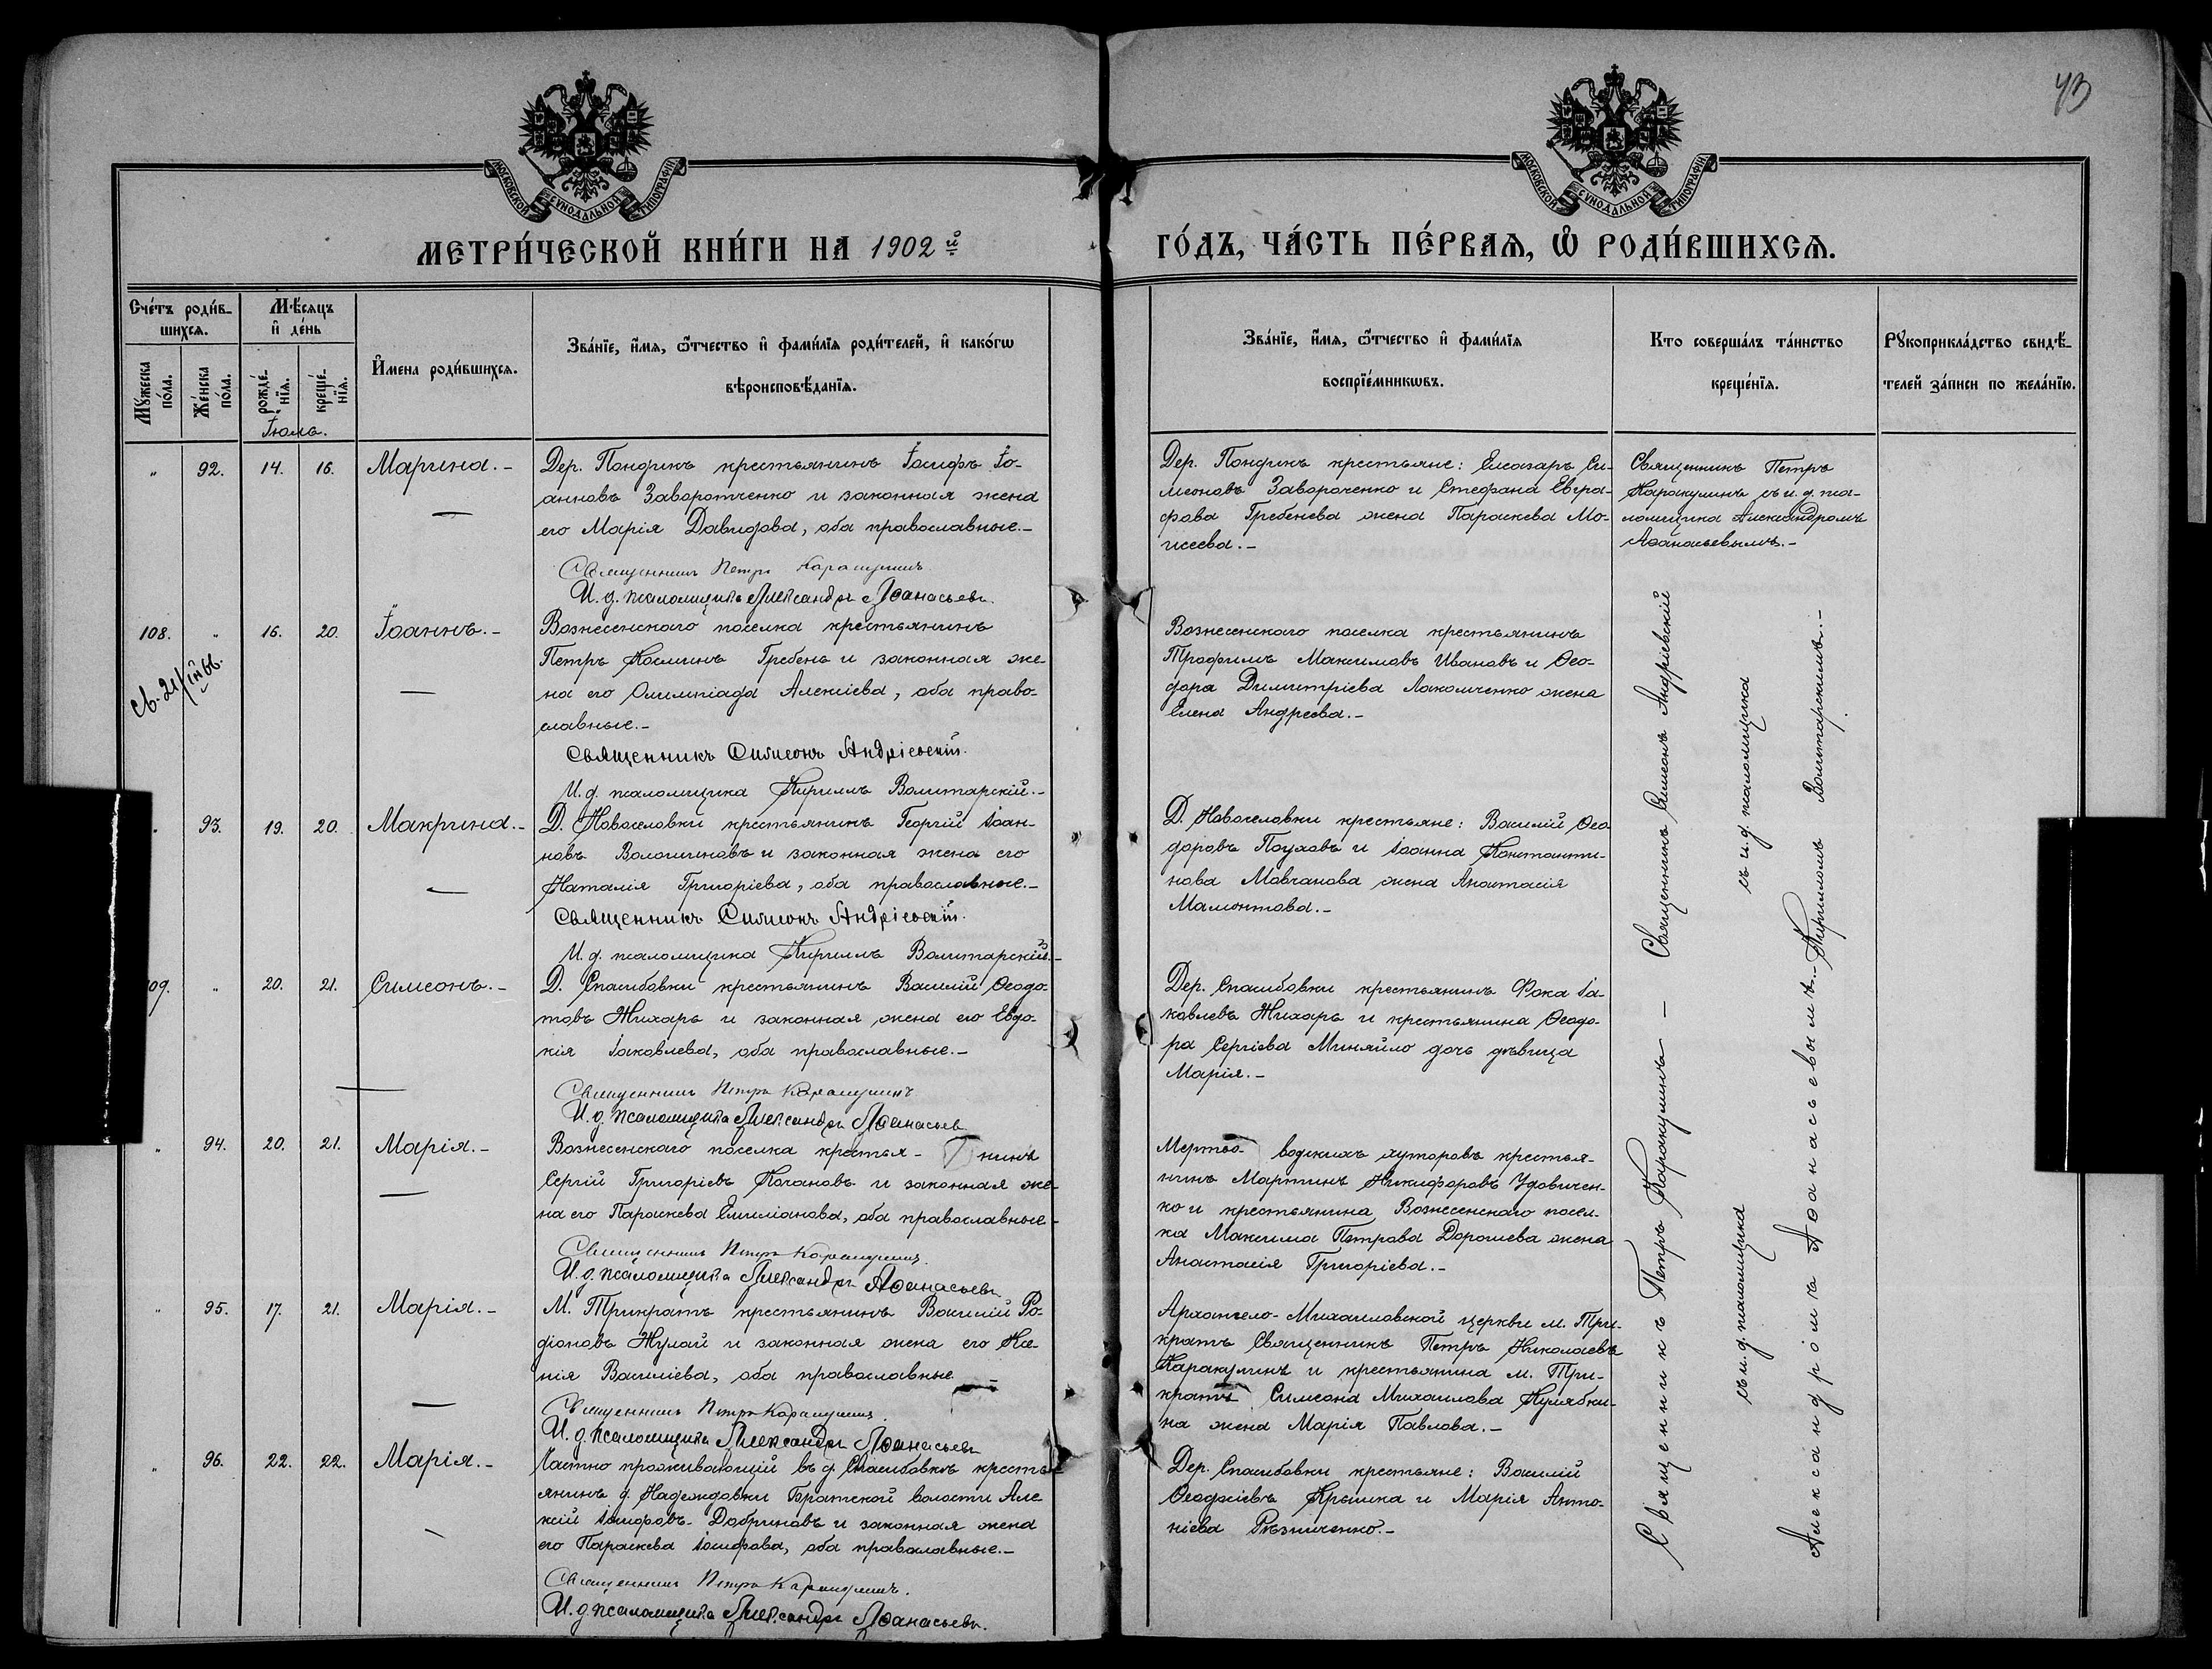 43
МОСКОВСКОЙ СУНОДАЛЬНОЙ ТИПОГРАФІИ
МОСКОВСКОЙ СУНОДАЛЬНОЙ ТИПОГРАФІИ
МЕТРИ́ЧЕСКОЙ КНИ́ГИ НА 1902й
ГО́ДЪ, ЧА́СТЬ ПЕ́РВАЯ, Ѡ РОДИ́ВШИХСЯ.
Сче́тъ роди́в-
шихся.
Мѣ́сяцъ
и де́нь
Мꙋ́жеска
по́ла.
Же́нска
по́ла.
рожде́-
нїя.
креще́-
нїя.
Імена роди́вшихся.
Зва́нїе, и́мя, ѻ́тчество и фами́лїя роди́телей, и како́гѡ
вѣроисповѣ́данїя.
Зва́нїе, и́мя, ѻ́тчество и фами́лїя
воспрїе́мникѡвъ.
Кто соверша́лъ та́инство
креще́нїя.
Рꙋкоприкла́дство свидѣ́-
телей за́писи по жела́нїю.
Іюль.
" 92. 14. 16. Марина.-
Дер. Пондикъ крестьянинъ Іосифъ Іо-
анновъ Заворотченко и законная жена
его Марія Давидова, оба православные.-
Священникъ Петръ Каракулинъ
И. д. псаломщика Александръ Аѳанасьевъ.
Дер. Пондикъ крестьяне: Елеазаръ Си-
меоновъ Завороченко и Стефана Евгра-
фова Гребенева жена Параскева Мо-
исеева.-
Священникъ Петръ
Каракулинъ съ и. д. пса-
ломщика Александромъ
Аѳанасьевымъ.-
108. " 16. 20. Іоаннъ.-
Св. 21
Вознесенскаго поселка крестьянинъ
Петръ Косминъ Гребень и законная же-
на его Олимпіада Алексіева, оба право-
славные.-
Священникъ Симеонъ Андріевскій.
И. д. псаломщика Кириллъ Волитарскій.-
Вознесенскаго поселка крестьянинъ
Трофимъ Максимовъ Ивановъ и Ѳео-
дора Димитріева Лакомченко жена
Елена Андреева.-
" 93. 19. 20. Макрина.-
Д. Новоселовки крестьянинъ Георгій Іоан-
новъ Волошиновъ и законная жена его
Наталія Григоріева, оба православные.-
Священникъ Симеонъ Андріевскій.
И. д. псаломщика Кириллъ Волитарскій.-
Д. Новоселовки крестьяне: Василій Ѳео-
доровъ Поуховъ и Іоанна Константи-
нова Мовчанова жена Анастасія
Мамонтова.-
09. " 20. 21. Симеонъ.-
Д. Спасибовки крестьянинъ Василій Ѳеодо-
товъ Жихарь и законная жена его Евдо-
кія Іаковлева, оба православные.-
Священникъ Петръ Каракулинъ
И. д. псаломщика Александръ Аѳанасьев
Дер. Спасибовки крестьянинъ Фока Іа-
ковлевъ Жихарь и крестьянина Ѳеодо-
ра Сергіева Миняйло дочь дѣвица
Марія.-
" 94. 20. 21. Марія.-
Вознесенскаго поселка крестья- нинъ
Сергій Григоріевъ Кочановъ и законная же-
на его Параскева Емиліанова, оба православные-
Священникъ Петръ Каракулинъ.
И. д. псаломщика Александръ Аѳанасьевъ
Мертво- водскихъ хуторовъ крестья-
нинъ Мартинъ Никифоровъ Удовичен-
ко и крестьянина Вознесенскаго посел-
ка Максима Петрова Дорошева жена
Анастасія Григоріева.-
" 95. 17. 21. Марія.-
М. Трикратъ крестьянинъ Василій Ро-
діоновъ Жулай и законная жена его Ксе-
нія Василіева, оба православные -
Священникъ Петръ Каракулинъ.
И. д. псаломщика Александръ Аѳанасьевъ
Архангело-Михаиловской церкви м. Три-
кратъ Священникъ Петръ Николаевъ
Каракулинъ и крестьянина м. Три-
кратъ Симеона Михаилова Кулябки-
на жена Марія Павлова.-
" 96. 22. 22. Марія.-
проживающій въ д. Спасибовкѣ кресть-
янинъ д. Надеждовки волости Але-
ксій Іосифовъ Добриновъ и законная жена
его Параскева Іосифова, оба православные.-
Священникъ Петръ Каракулинъ.
И. д. псаломщика Александръ Аѳанасьевъ.
Дер. Спасибовки крестьяне: Василій
Ѳеодосіевъ Крышка и Марія Анто-
ніева Рѣзниченко.-
Священникъ Петръ Каракулинъ — Священникъ Симеонъ Андріевскій
съ и. д. псаломщика съ и. д. псаломщика
Александромъ Аѳанасьевымъ.- Кирилломъ Волитарскимъ.-